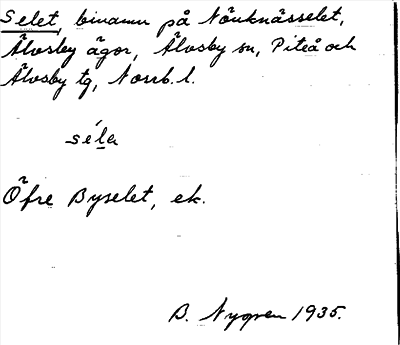 Selet, binamn på Nönknässelet,
Älvsby ägor, Älvsby sn, Piteå och
Älvsby tg, Norrb. l.
séla
Öfre Byselet, ek.
B. Nygren 1935.